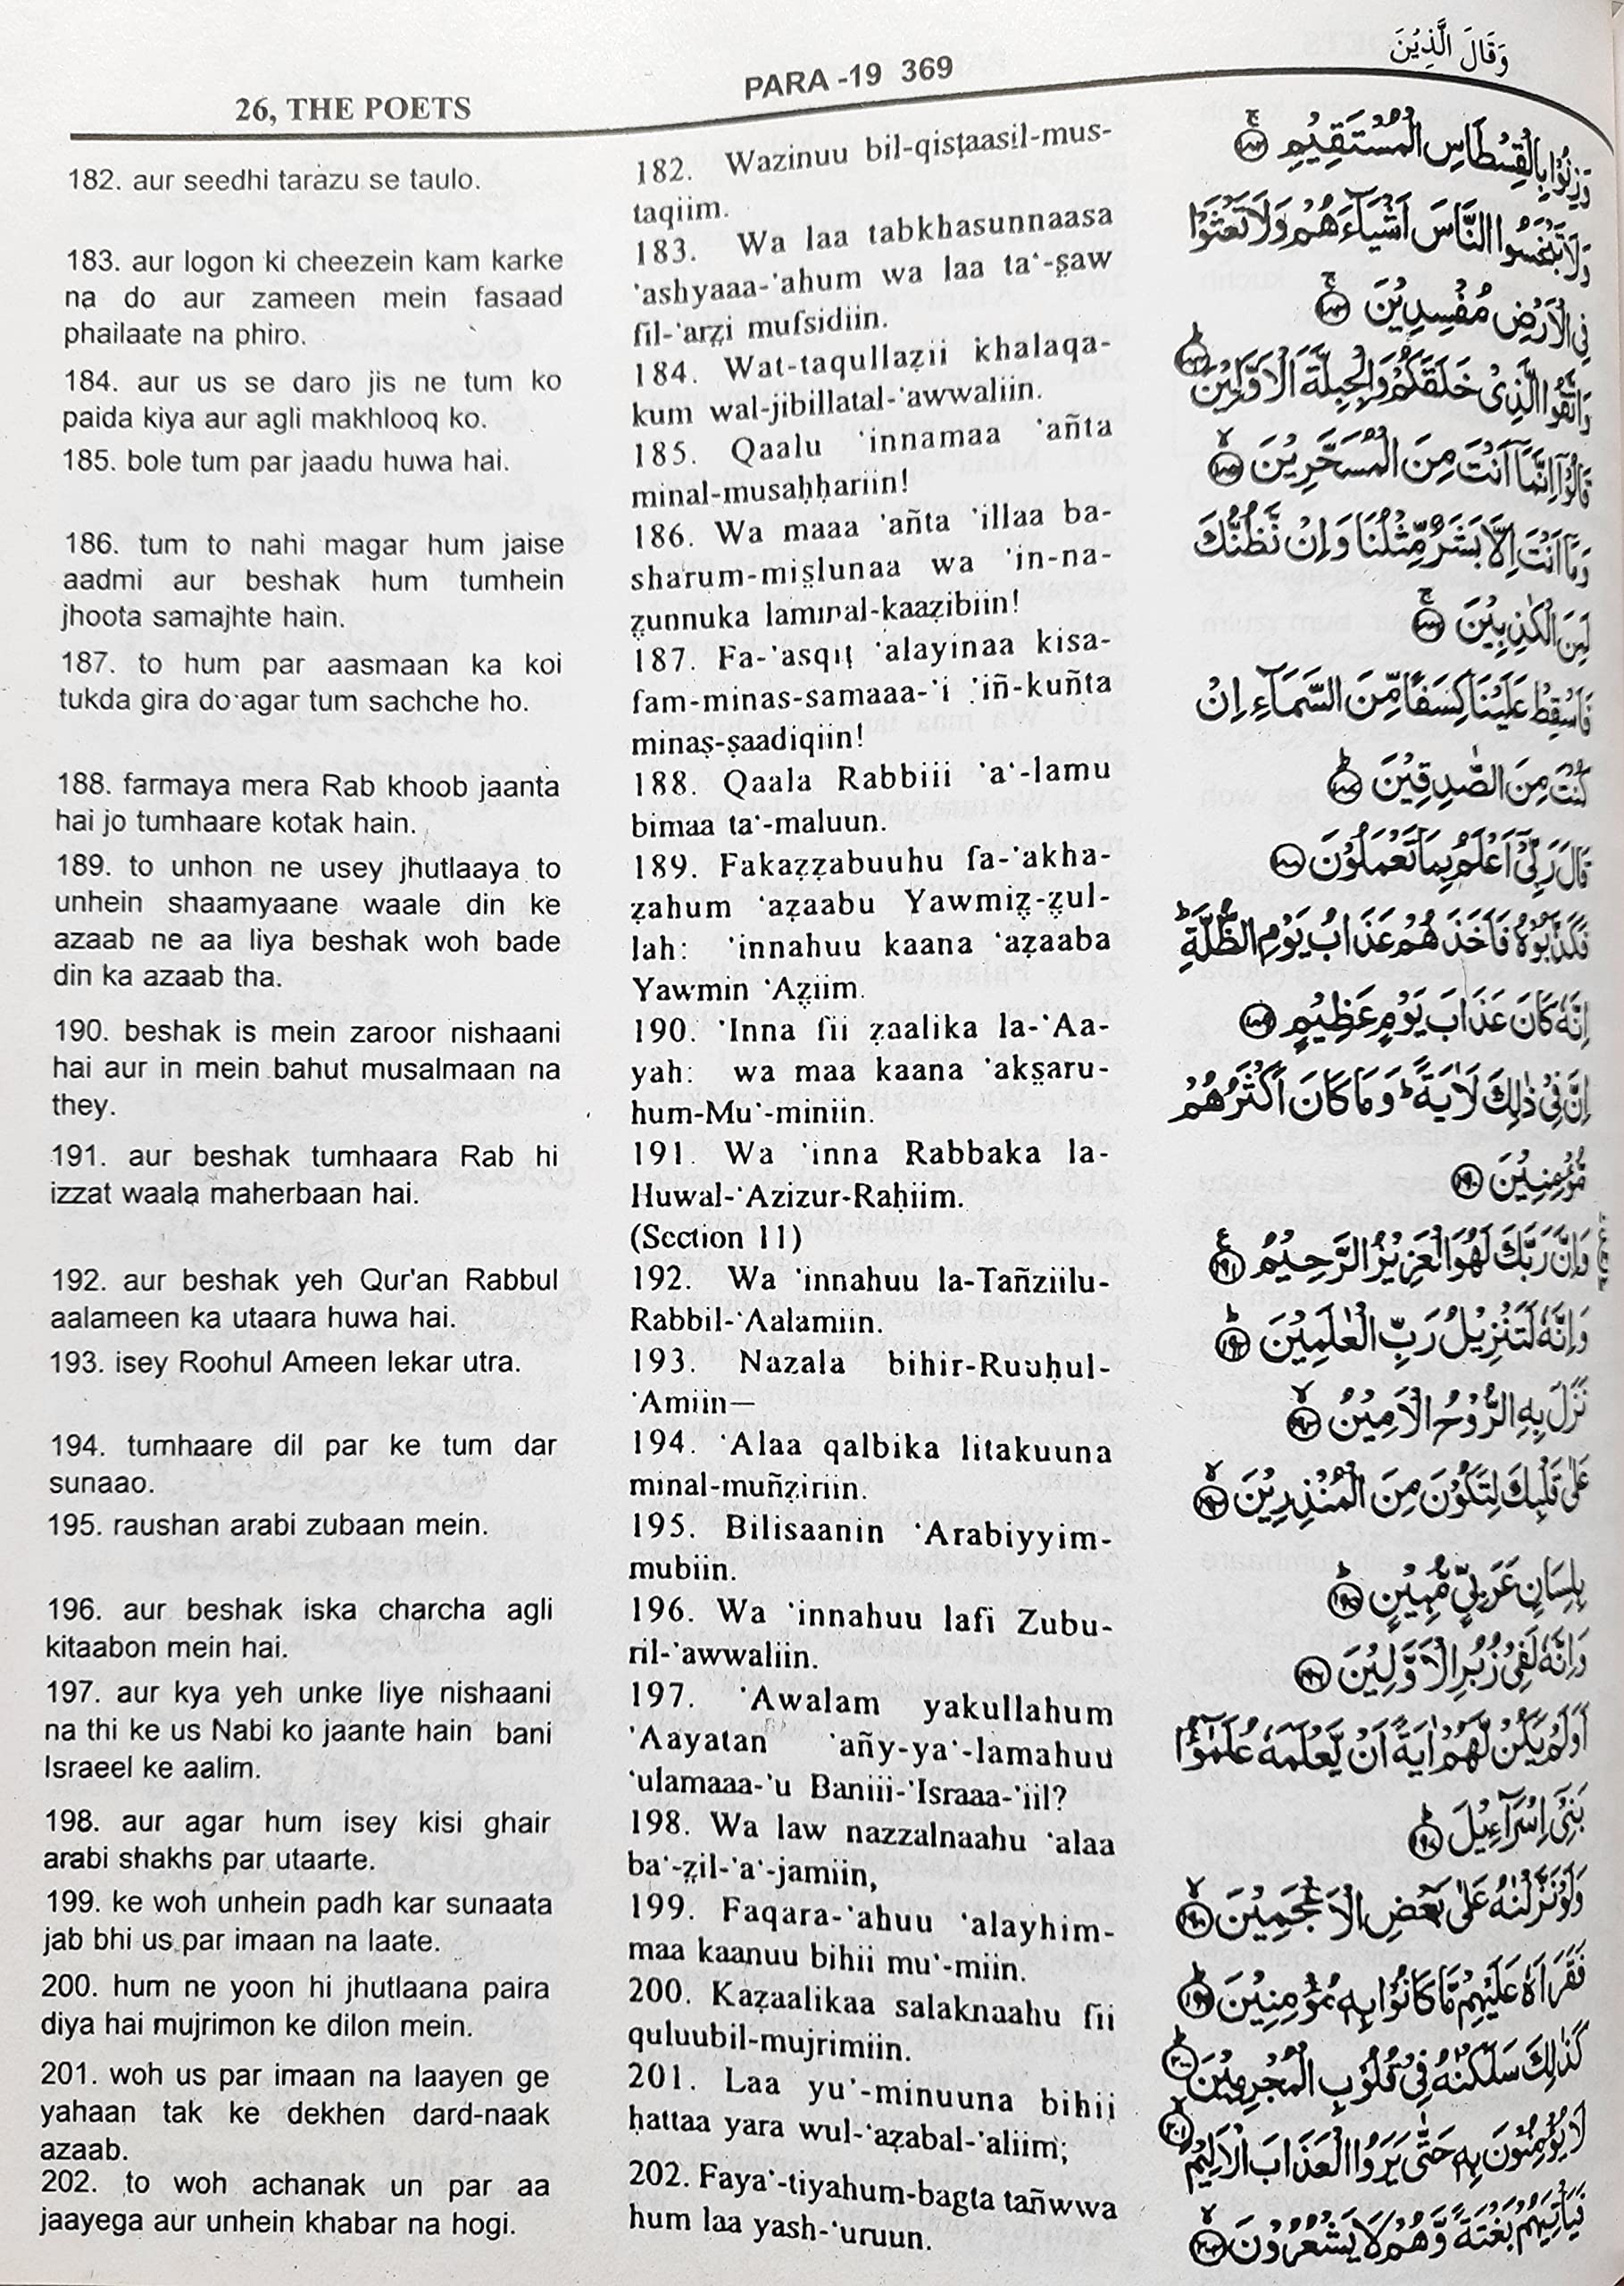 26, THE POETS
PARA -19 369
وَقَالَ الَّذِيْنَ
182. aur seedhi tarazu se taulo.
183. aur logon ki cheezein kam karke
na do aur zameen mein fasaad
phailaate na phiro.
184. aur us se daro jis ne tum ko
paida kiya aur agli makhlooq ko.
185. bole tum par jaadu huwa hai.
186. tum to nahi magar hum jaise
aadmi aur beshak hum tumhein
jhoota samajhte hain.
187. to hum par aasmaan ka koi
tukda gira do agar tum sachche ho.
188. farmaya mera Rab khoob jaanta
hai jo tumhaare kotak hain.
189. to unhon ne usey jhutlaaya to
unhein shaamyaane waale din ke
azaab ne aa liya beshak woh bade
din ka azaab tha.
190. beshak is mein zaroor nishaani
hai aur in mein bahut musalmaan na
they.
191. aur beshak tumhaara Rab hi
izzat waala maherbaan hai.
192. aur beshak yeh Qur'an Rabbul
aalameen ka utaara huwa hai.
193. isey Roohul Ameen lekar utra.
194. tumhaare dil par ke tum dar
sunaao.
195. raushan arabi zubaan mein.
196. aur beshak iska charcha agli
kitaabon mein hai.
197. aur kya yeh unke liye nishaani
na thi ke us Nabi ko jaante hain bani
Israeel ke aalim.
198. aur agar hum isey kisi ghair
arabi shakhs par utaarte.
199. ke woh unhein padh kar sunaata
jab bhi us par imaan na laate.
200. hum ne yoon hi jhutlaana paira
diya hai mujrimon ke dilon mein.
201. woh us par imaan na laayen ge
yahaan tak ke dekhen dard-naak
azaab.
202. to woh achanak un par aa
jaayega aur unhein khabar na hogi.
182. Wazinuu bil-qisṭaasil-mus-
taqiim.
183. Wa laa tabkhasunnaasa
'ashyaaa-'ahum wa laa ta‘-ṣaw
fil-'arẓi mufsidiin.
184. Wat-taqullaẓii khalaqa-
kum wal-jibillatal-'awwaliin.
185. Qaalu 'innamaa 'añta
minal-musaḥḥariin!
186. Wa maaa 'añta 'illaa ba-
sharum-miṣlunaa wa 'in-na-
ẓunnuka laminal-kaaẓibiin!
187. Fa-'asqiṭ ‘alayinaa kisa-
fam-minas-samaaa-'i 'iñ-kuñta
minaṣ-ṣaadiqiin!
188. Qaala Rabbiii 'a‘-lamu
bimaa ta‘-maluun.
189. Fakaẓẓabuuhu fa-'akha-
ẓahum ‘aẓaabu Yawmiẓ-ẓul-
lah: 'innahuu kaana ‘aẓaaba
Yawmin ‘Aẓiim.
190. 'Inna fii ẓaalika la-'Aa-
yah: wa maa kaana 'akṣaru-
hum-Mu'-miniin.
191. Wa 'inna Rabbaka la-
Huwal-‘Azizur-Raḥiim.
(Section 11)
192. Wa 'innahuu la-Tañziilu-
Rabbil-‘Aalamiin.
193. Nazala bihir-Ruuḥul-
'Amiin—
194. ‘Alaa qalbika litakuuna
minal-muñẓiriin.
195. Bilisaanin ‘Arabiyyim-
mubiin.
196. Wa 'innahuu lafi Zubu-
ril-'awwaliin.
197. 'Awalam yakullahum
'Aayatan 'añy-ya‘-lamahuu
‘ulamaaa-'u Baniii-'Israaa-'iil?
198. Wa law nazzalnaahu ‘alaa
ba‘-ẓil-'a‘-jamiin,
199. Faqara-'ahuu ‘alayhim-
maa kaanuu bihii mu'-miin.
200. Kaẓaalikaa salaknaahu fii
quluubil-mujrimiin.
201. Laa yu'-minuuna bihii
ḥattaa yara wul-‘aẓabal-'aliim;
202. Faya'-tiyahum-bagta tañwwa
hum laa yash-‘uruun.
وَزِنُوْا بِالْقِسْطَاسِ الْمُسْتَقِيْمِ ۚ‏﴿۱۸۲﴾
وَلَا تَبْخَسُوا النَّاسَ اَشْيَآءَهُمْ وَلَا تَعْثَوْا
فِى الْاَرْضِ مُفْسِدِيْنَ ۚ﴿۱۸۳﴾
وَاتَّقُوا الَّذِىْ خَلَقَكُمْ وَالْجِبِلَّةَ الْاَوَّلِيْنَ ؕ﴿۱۸۴﴾
قَالُوْۤا اِنَّمَاۤ اَنْتَ مِنَ الْمُسَحَّرِيْنَ ۙ﴿۱۸۵﴾
وَمَاۤ اَنْتَ اِلَّا بَشَرٌ مِّثْلُنَا وَاِنْ نَّظُنُّكَ
لَمِنَ الْكٰذِبِيْنَ ۚ﴿۱۸۶﴾
فَاَسْقِطْ عَلَيْنَا كِسَفًا مِّنَ السَّمَآءِ اِنْ
كُنْتَ مِنَ الصّٰدِقِيْنَ ؕ﴿۱۸۷﴾
قَالَ رَبِّىْۤ اَعْلَمُ بِمَا تَعْمَلُوْنَ ﴿۱۸۸﴾
فَكَذَّبُوْهُ فَاَخَذَهُمْ عَذَابُ يَوْمِ الظُّلَّةِ ؕ
اِنَّهٗ كَانَ عَذَابَ يَوْمٍ عَظِيْمٍ ﴿۱۸۹﴾
اِنَّ فِىْ ذٰلِكَ لَاٰيَةً ؕ وَمَا كَانَ اَكْثَرُهُمْ
مُّؤْمِنِيْنَ ﴿۱۹۰﴾
وَاِنَّ رَبَّكَ لَهُوَ الْعَزِيْزُ الرَّحِيْمُ ﴿۱۹۱﴾
وَاِنَّهٗ لَتَنْزِيْلُ رَبِّ الْعٰلَمِيْنَ ؕ﴿۱۹۲﴾
نَزَلَ بِهِ الرُّوْحُ الْاَمِيْنُ ۙ﴿۱۹۳﴾
عَلٰى قَلْبِكَ لِتَكُوْنَ مِنَ الْمُنْذِرِيْنَ ۙ﴿۱۹۴﴾
بِلِسَانٍ عَرَبِىٍّ مُّبِيْنٍ ؕ﴿۱۹۵﴾
وَاِنَّهٗ لَفِىْ زُبُرِ الْاَوَّلِيْنَ ﴿۱۹۶﴾
اَوَلَمْ يَكُنْ لَّهُمْ اٰيَةً اَنْ يَّعْلَمَهٗ عُلَمٰٓؤُا
بَنِىْۤ اِسْرَآءِيْلَ ؕ﴿۱۹۷﴾
وَلَوْ نَزَّلْنٰهُ عَلٰى بَعْضِ الْاَعْجَمِيْنَ ۙ﴿۱۹۸﴾
فَقَرَاَهٗ عَلَيْهِمْ مَّا كَانُوْا بِهٖ مُؤْمِنِيْنَ ؕ﴿۱۹۹﴾
كَذٰلِكَ سَلَكْنٰهُ فِىْ قُلُوْبِ الْمُجْرِمِيْنَ ؕ﴿۲۰۰﴾
لَا يُؤْمِنُوْنَ بِهٖ حَتّٰى يَرَوُا الْعَذَابَ الْاَلِيْمَ ۙ﴿۲۰۱﴾
فَيَاْتِيَهُمْ بَغْتَةً وَّهُمْ لَا يَشْعُرُوْنَ ۙ﴿۲۰۲﴾